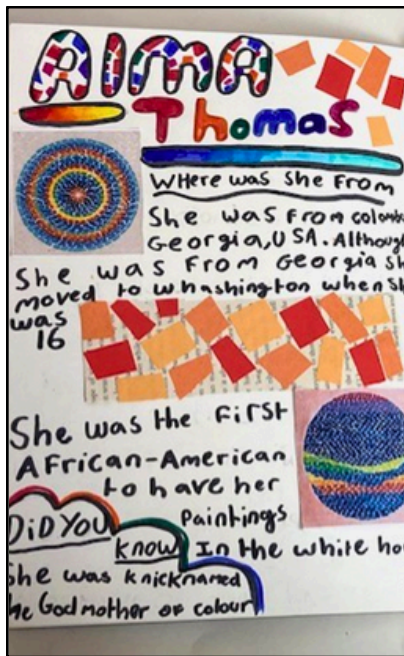 AlMA
Thomas
WHere was she From
She was From colomb
Georgia, USA. Althoug
She was From Georgia sh
moved to whashington when sh
was
16
She was the First
African-American
to have her
Paintings
In the white ho
DiD YOU
know
She was knicknamed
he Godmother of colour